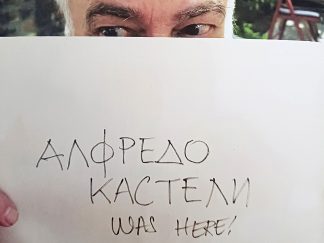 АЛФРЕДО
КАСТЕЛИ
WAS HERE!